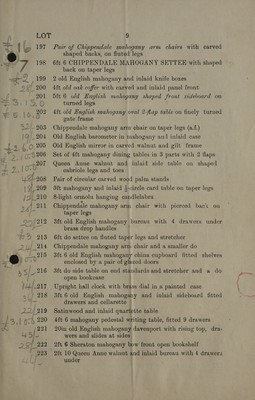 LOT 9
197 Pair of Chippendale mahogany arm chairs with carved
shaped backs, on fluted legs
198 6ft 6 CHIPPENDALE MAHOGANY SETTEE with shaped
back on taper legs
199 2 old English mahogany and inlaid knife boxes
200 4ft old oak coffer with carved and inlaid panel front
201 5ft 6 old English mahogany shaped front sideboard on
turned legs
202 4ft old English mahogany oval 2-flap table on finely turned
gate frame
203 Chippendale mahogany arm chair on taper legs (a.f.)
204 Old English barometer in mahogany and inlaid case
205 Old English mirror in carved walnut and gilt frame
206 Set of 4ft mahogany dining tables in 3 parts with 2 flaps
207 Queen Anne walnut and inlaid side table on shaped
cabriole legs and toes
208 Pair of circular carved wood palm stands
209 3ft mahogany and inlaid ½-circle card table on taper legs
210 8-light ormolu hanging candelabra
211 Chippendale mahogany arm chair with pierced back on
taper legs
212 3ft old English mahogany bureau with 4 drawers under
brass drop handles
213 6ft do settee on fluted taper legs and stretcher
214 Chippendale mahogany arm chair and a smaller do
215 3ft 6 old English mahogany china cupboard fitted shelves
enclosed by a pair of glazed doors
216 3ft do side table on end standards and stretcher and a do
open bookcase
217 Upright hall clock with brass dial in a painted case
218 3ft 6 old English mahogany and inlaid sideboard fitted
drawers and cellarette
219 Satinwood and inlaid quartette table
220 4ft 6 mahogany pedestal writing table, fitted 9 drawers
221 20in old English mahogany davenport with rising top, dra-
wers and slides at sides
222 2ft 6 Sheraton mahogany bow front open bookshelf
223 2ft 10 Queen Anne walnut and inlaid bureau with 4 drawers
under